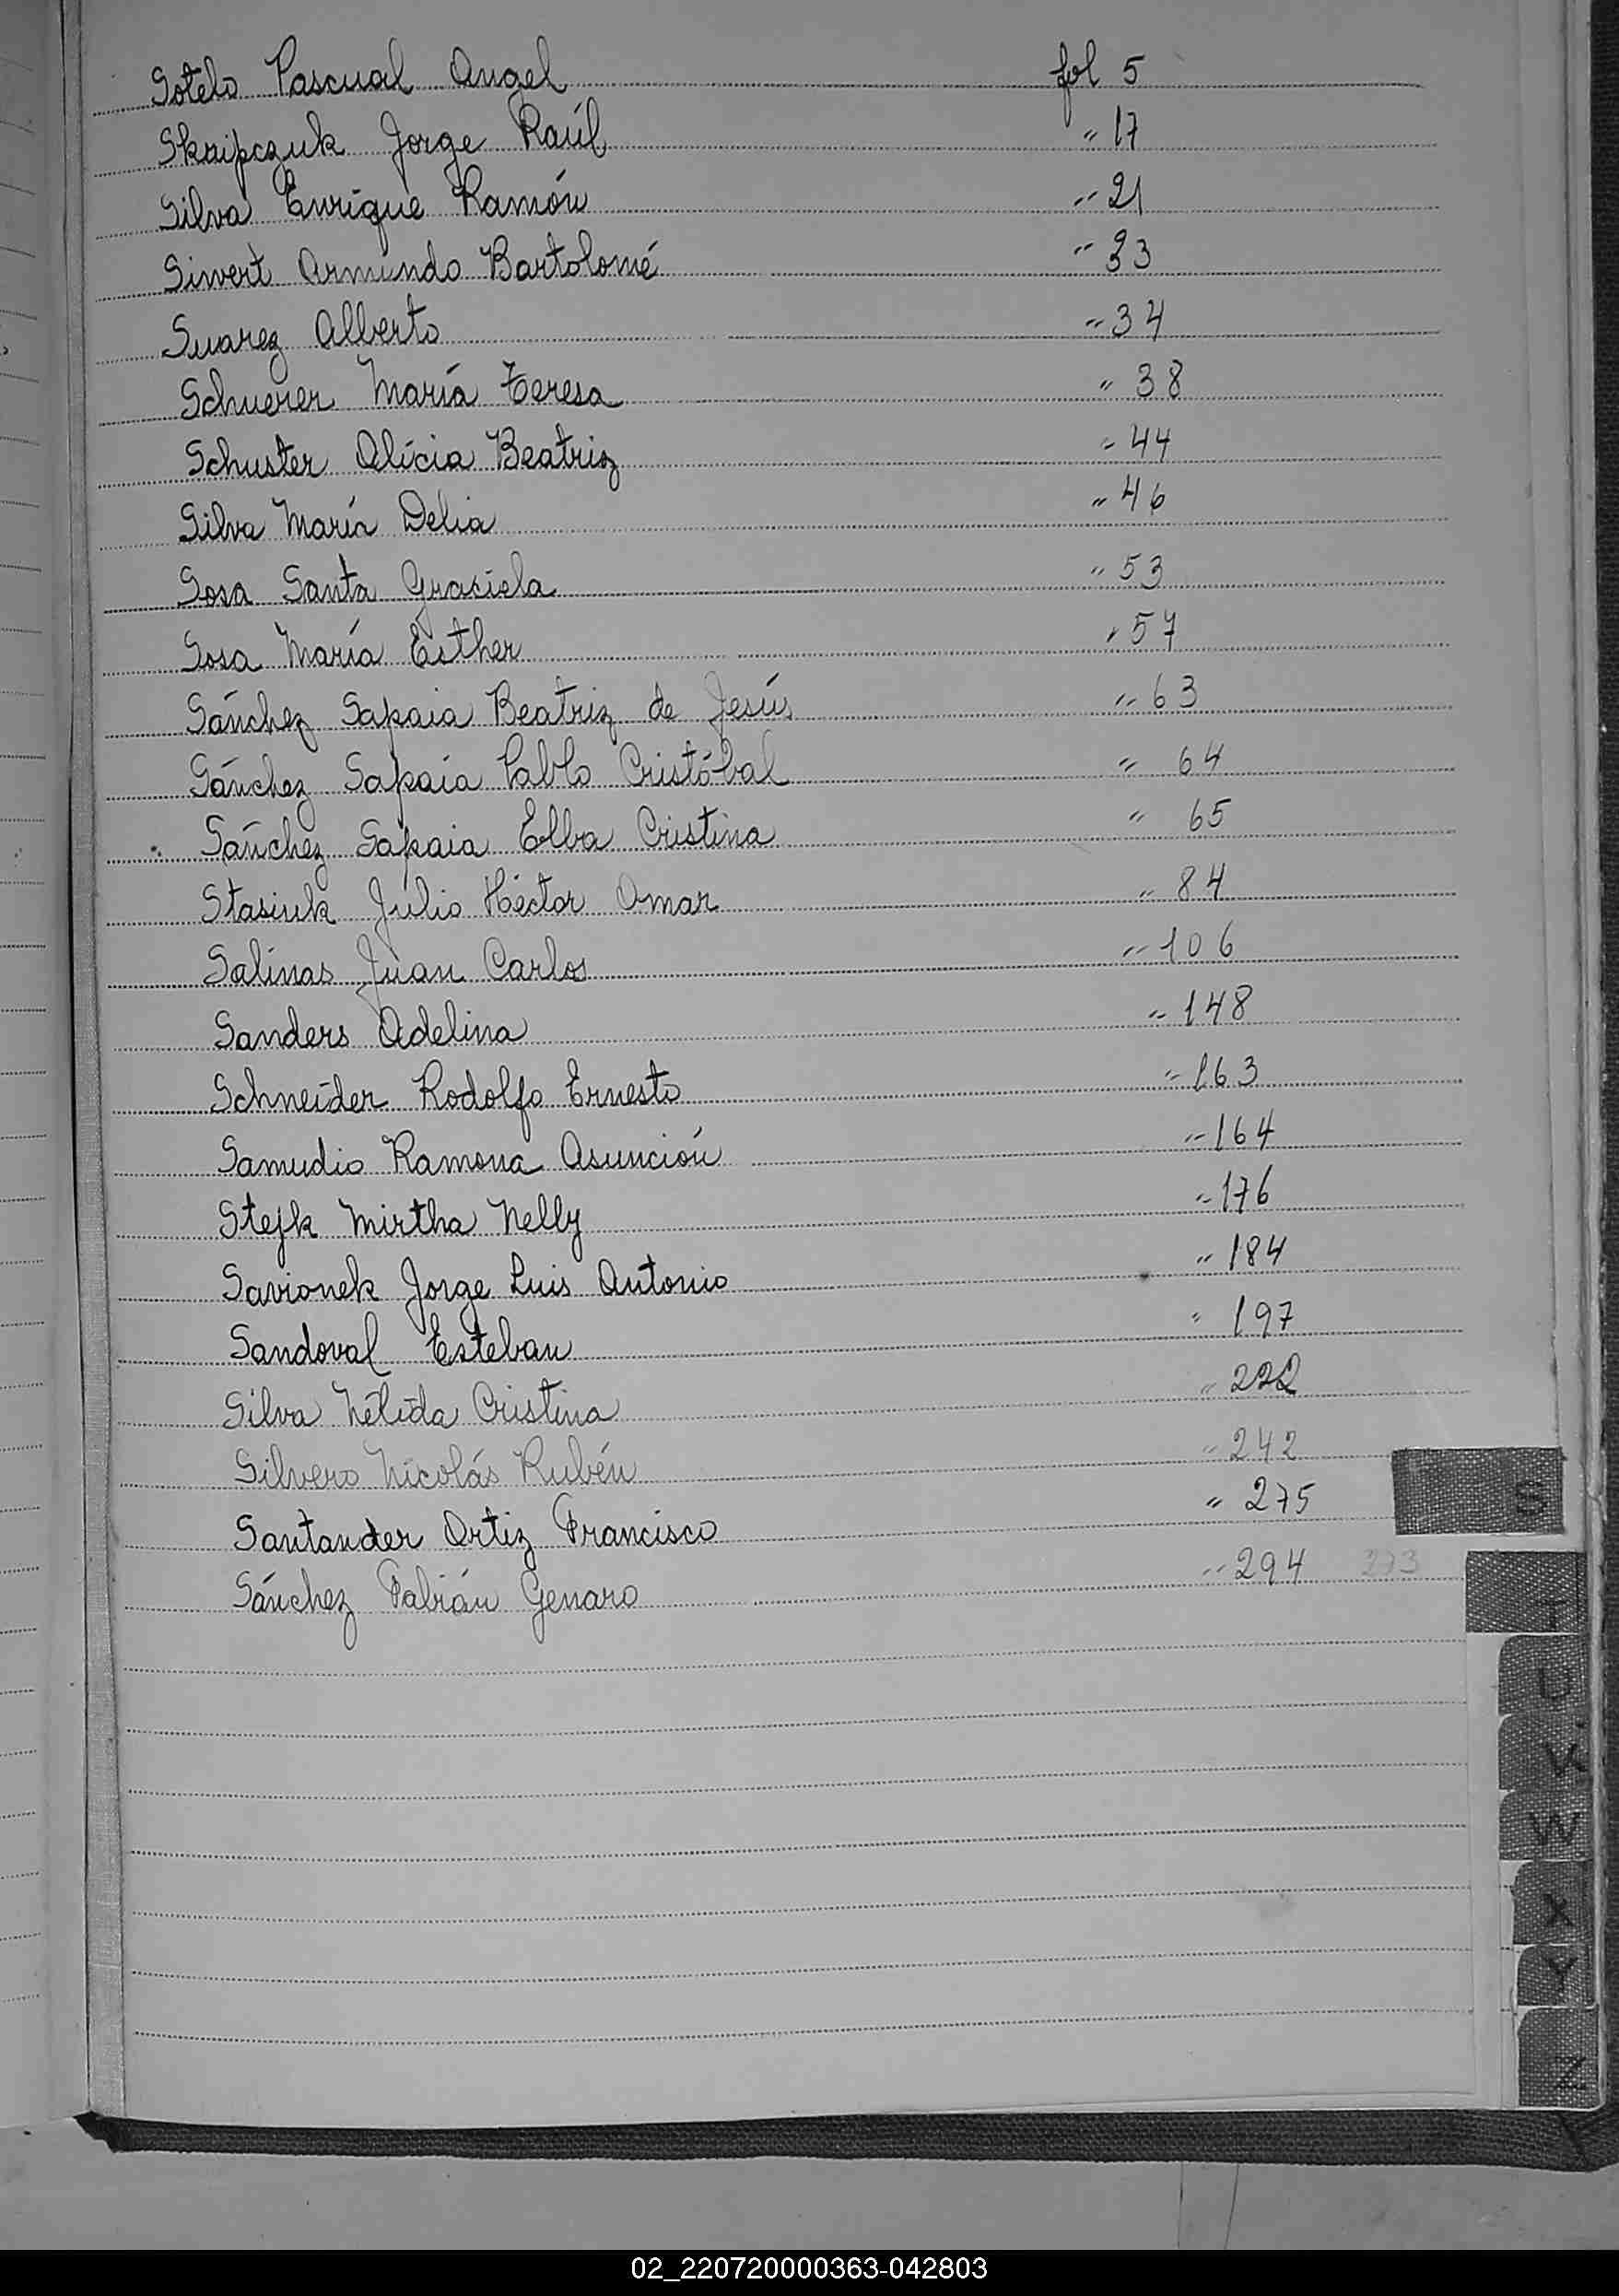 Sotelo Pascual Angel fol 5
Skripczuk Jorge Raúl " 17
Silva Enrique Ramón " 21
Siwert Armundo Bartolomé " 33
Suarez Alberto " 34
Schuerer María Teresa " 38
Schuster Alicia Beatriz " 44
Silva María Delia " 46
Sosa Santa Graciela " 53
Sosa María Esther " 57
Sánchez Sapaia Beatriz de Jesús " 63
Sánchez Sapaia Pablo Cristóbal " 64
Sánchez Sapaia Elba Cristina " 65
Stasiuk Julio Héctor Omar " 84
Salinas Juan Carlos " 106
Sanders Adelina " 148
Schneider Rodolfo Ernesto " 163
Samudio Ramona Asunción " 164
Stejk Mirtha Nelly " 176
Savionek Jorge Luis Antonio " 184
Sandoval Esteban " 197
Silva Nélida Cristina " 222
Silvero Nicolás Rubén " 242
Santander Ortiz Francisco " 275
Sánchez Fabián Genaro " 294 273
S
T
U
V
W
X
Y
Z
02_220720000363-042803